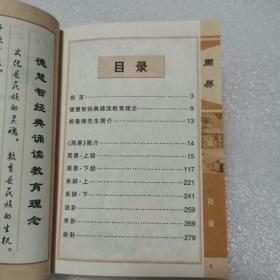 德慧智经典诵读教育理念
文化是民族的灵魂。教育是民族的生机。
目录
前言 3
德慧智经典诵读教育理念 9
熊春锦先生简介 13
《周易》简介 14
周易·上经 15
周易·下经 117
系辞·上 221
系辞·下 241
说卦 259
序卦 269
杂卦 279
周易
目录
1